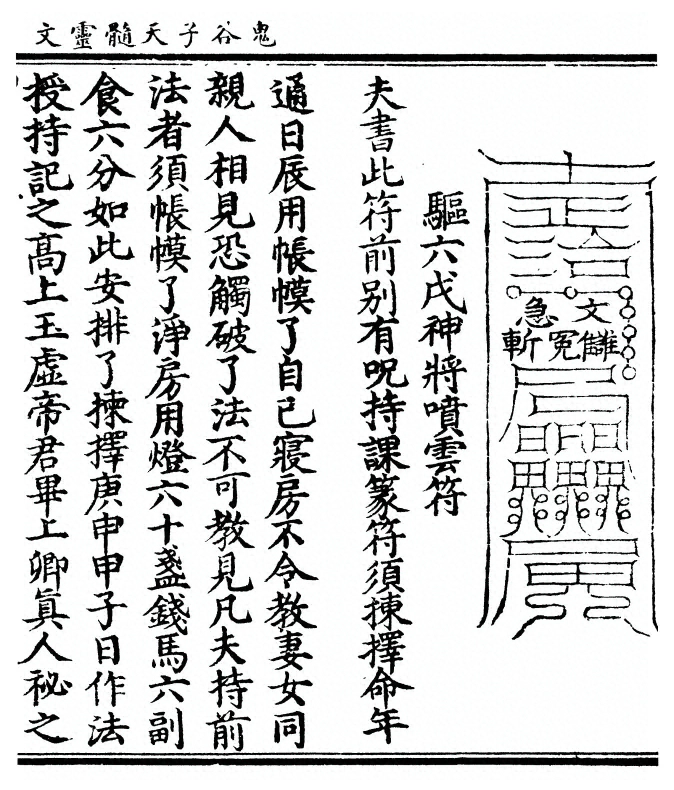 鬼谷子天髓靈文
急文
斬冤讎
驅六戊神將噴雲符
夫書此符前別有呪持課篆符須揀擇命年
通日辰用帳幙了自己寢房不令教妻女同
親人相見恐觸破了法不可教見凡夫持前
法者須帳幙了淨房用燈六十盞錢馬六副
食六分如此安排了揀擇庚申甲子日作法
授持記之高上玉虛帝君畢上卿眞人秘之